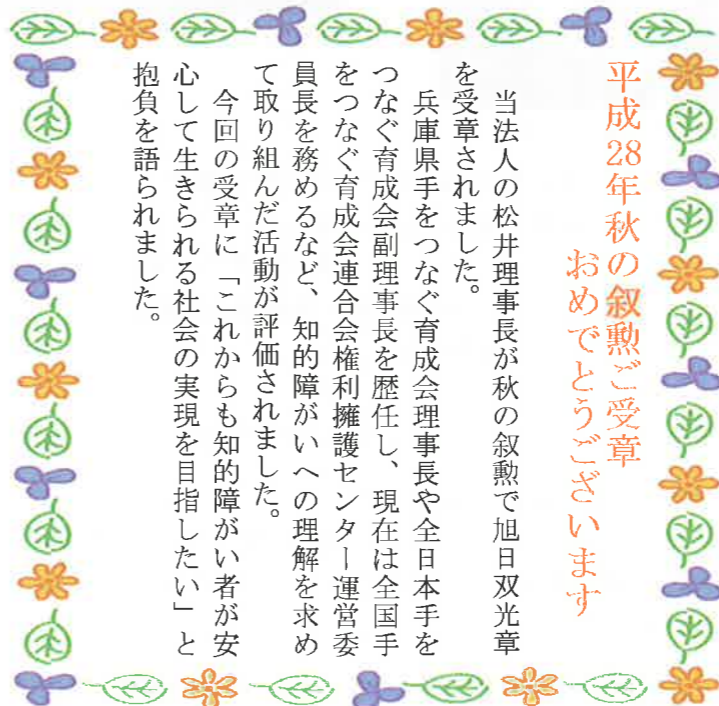 平成28年秋の叙勲ご受章
おめでとうございます
当法人の松井理事長が秋の叙勲で旭日双光章
を受章されました。
兵庫県手をつなぐ育成会理事長や全日本手を
つなぐ育成会副理事長を歴任し、現在は全国手
をつなぐ育成会連合会権利擁護センター運営委
員長を務めるなど、知的障がいへの理解を求め
て取り組んだ活動が評価されました。
今回の受章に「これからも知的障がい者が安
心して生きられる社会の実現を目指したい」と
抱負を語られました。